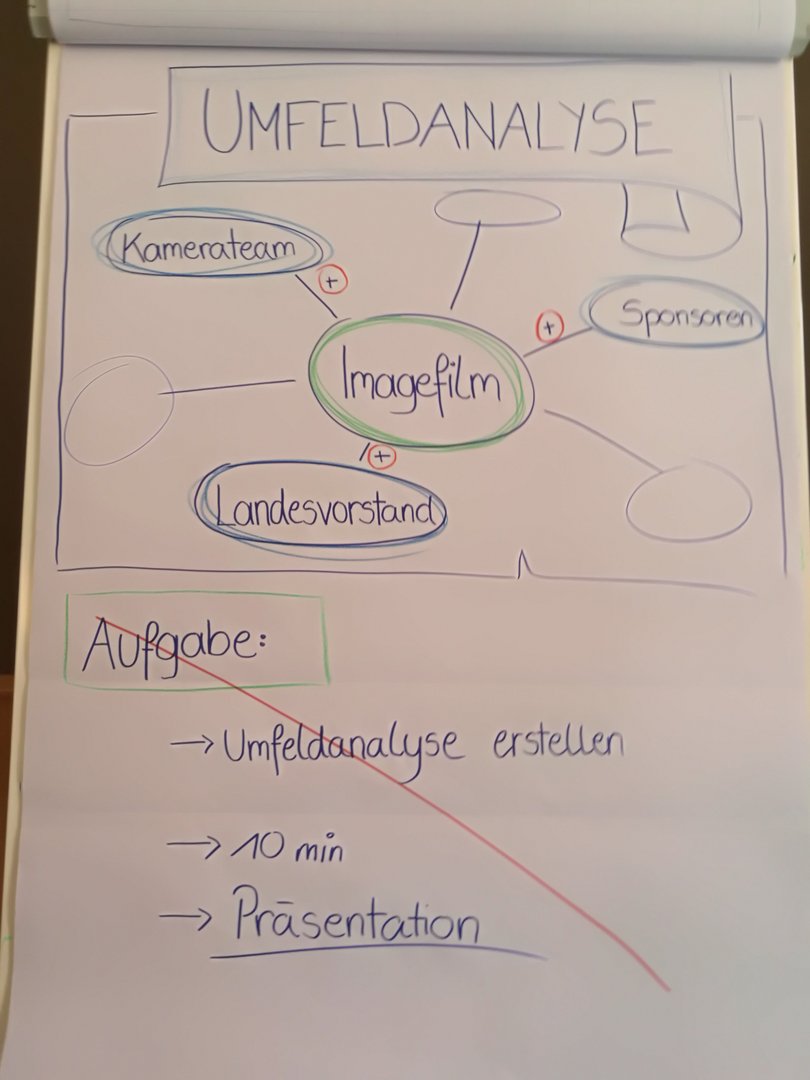 UMFELDANALYSE
Kamerateam
+
+
Sponsoren
Imagefilm
+
Landesvorstand
Aufgabe:
→ Umfeldanalyse erstellen
→ 10 min
→ Präsentation